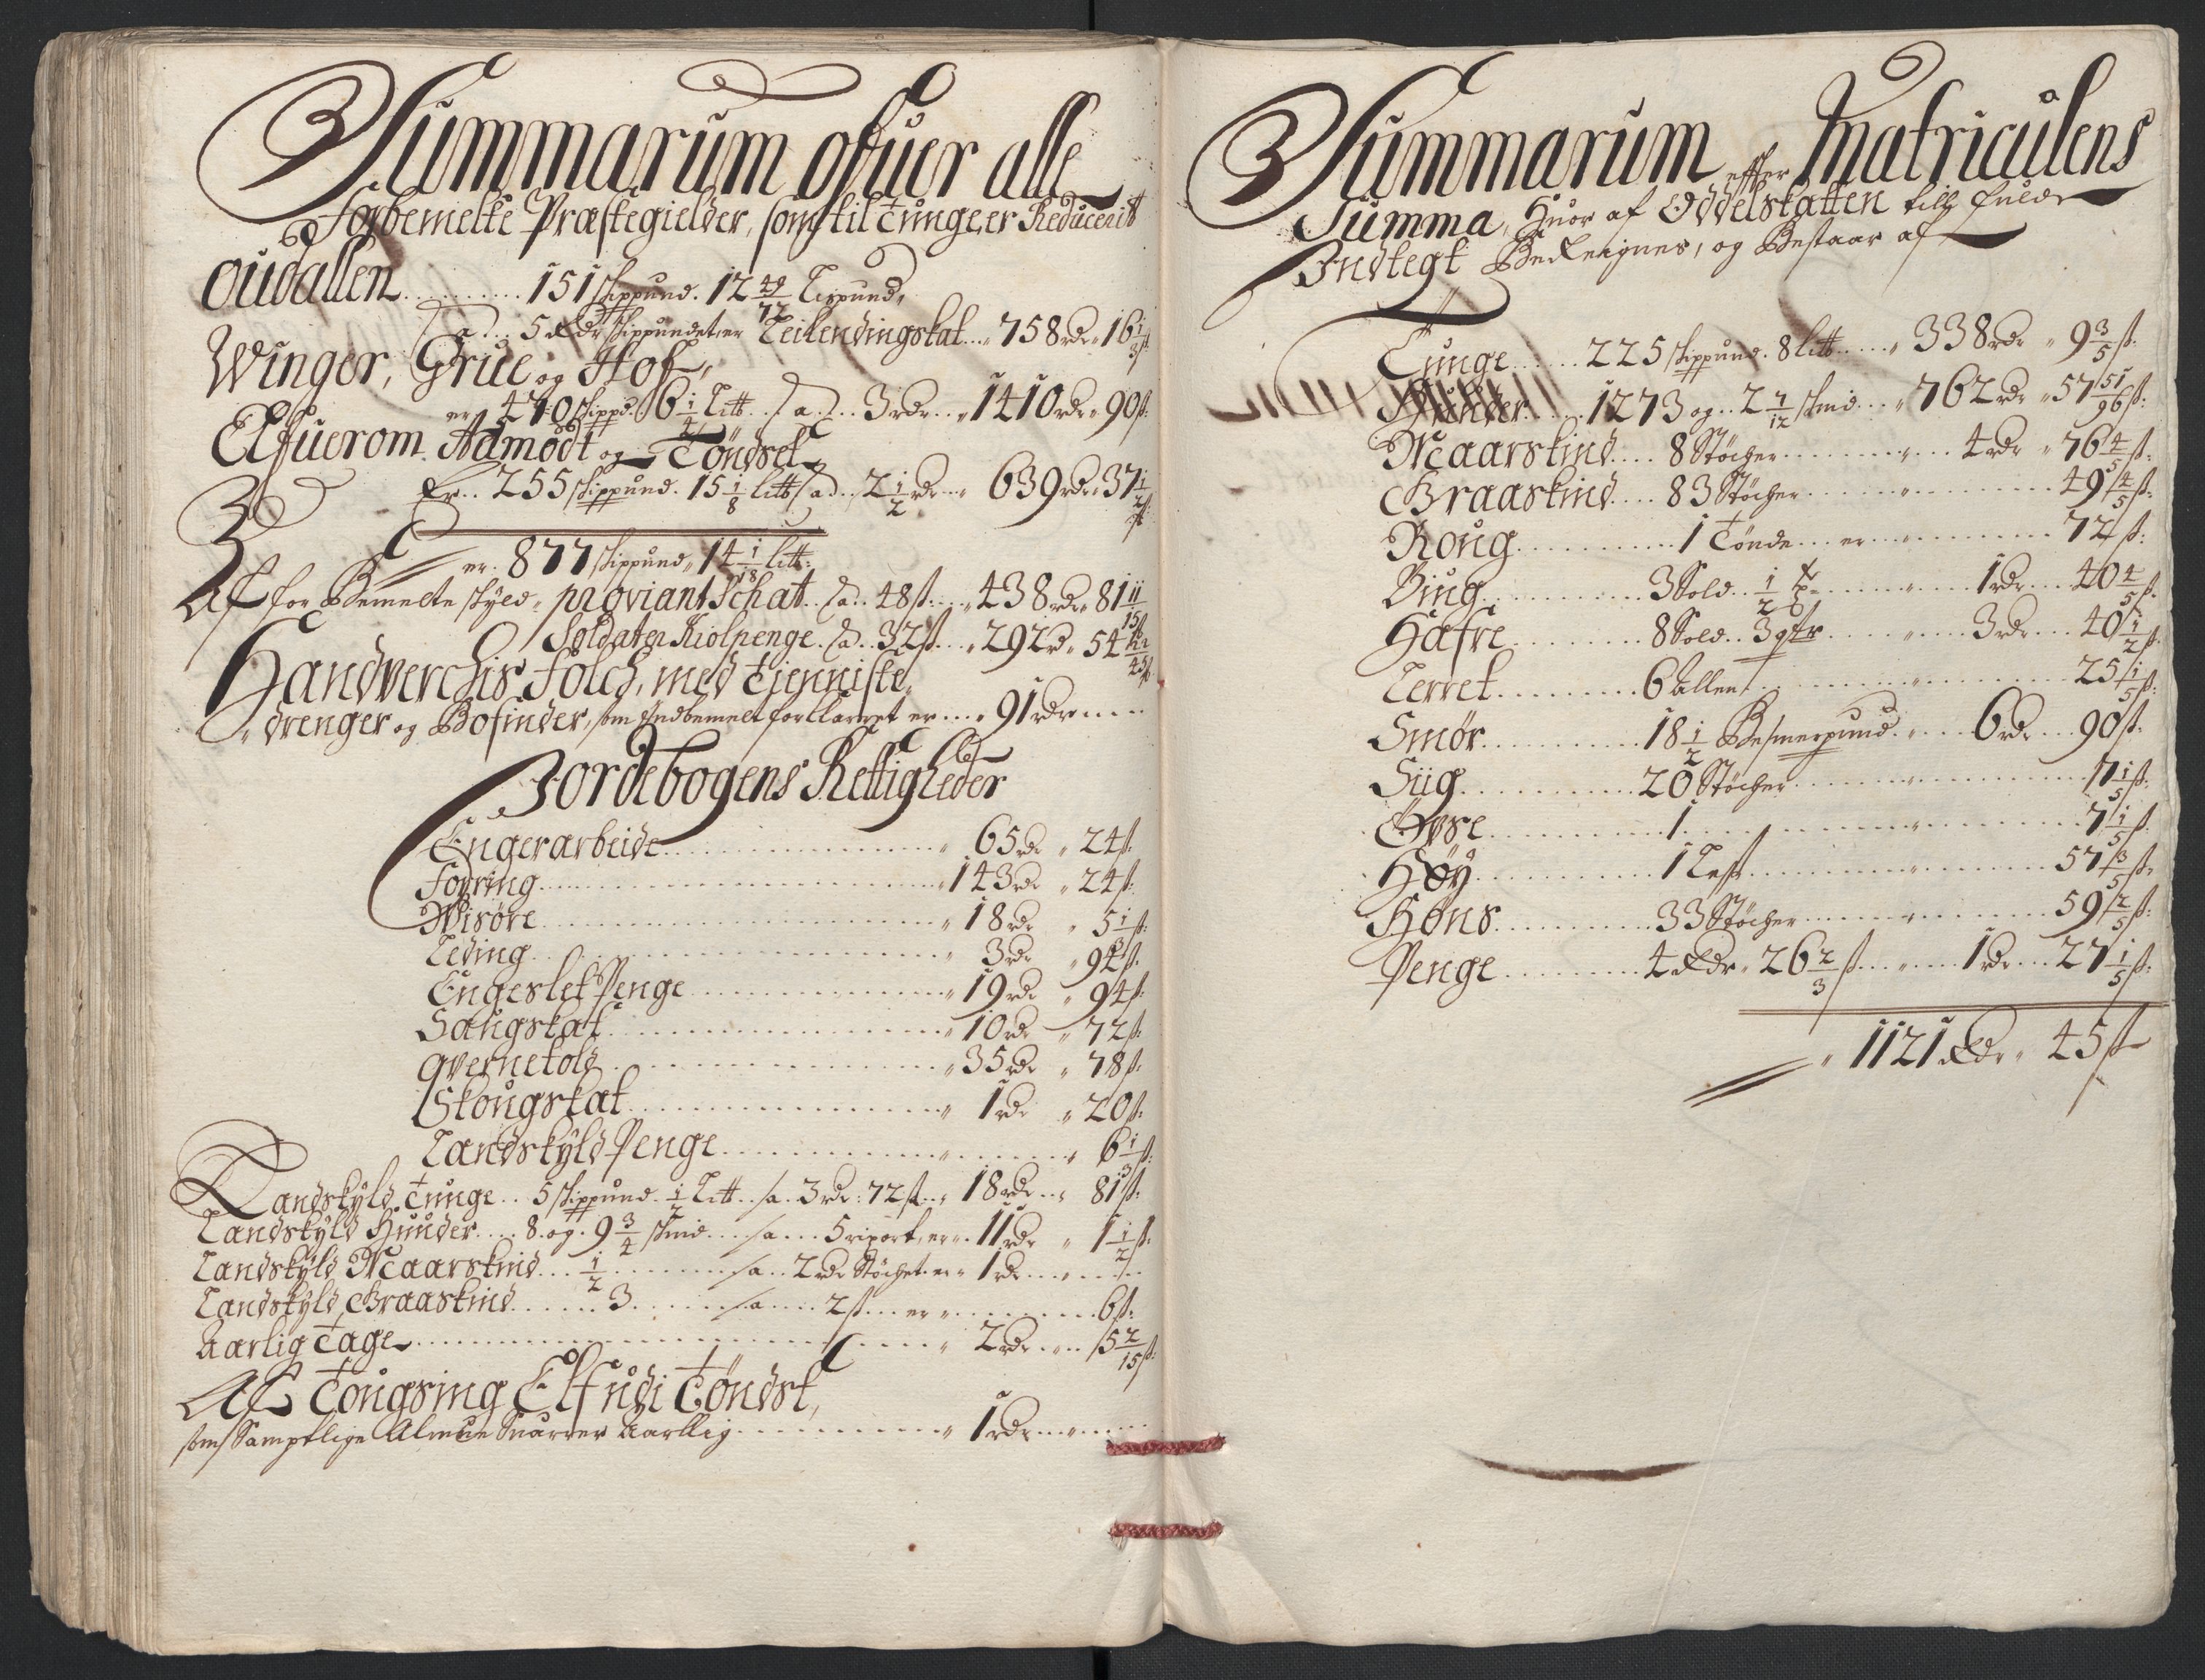 Summarum ofuer alle
forbemelte Præstegielder, som til Tunge, er Reduceritt
Oudallen ......... 151 skippund. 12 49/72 Lispund,
a. 5 Rdr skippundet, er Leilendingskat .... 758 rdr. 16 1/3 ß.
Winger, Grue og Hof,
er 470 skippd. 6 1/4 Litt. a. 3 rdr. 1410 rdr. 90 ß.
Elfuerom Aamodt og Töndset
Er. 255 skippund. 15 1/8 litt a. 2 1/2 rdr. 639 rdr. 37 1/2 ß
er. 877 skippund, 14 1/18 litt:
Af for Bemelte skyld, proviant Schat a. 48 ß. 438 rdr. 81 11/15 ß
Soldater Kiolpenge. a. 32 ß. 292 rd. 54 /45 ß
Handverchis Folch, med tienniste
drenger og Bosinder, som Endbemelt forklarret er ... 91 rdr ....
Jordebogens Rettigheder
Engerarbeide ......... 65 rdr 24 ß.
Fopring ......... 143 rdr 24 ß.
Wisöre ......... 18 rdr 5 1/3 ß.
Leding ......... 3 rdr 94 ß.
Engeslet Penge ......... 19 rdr 94 ß.
Saugskat ......... 10 rdr 72 ß.
Qvernetold ......... 35 rdr 78 ß.
Skougskat ......... 1 rdr 20 ß.
Landskyld Penge ......... 6 1/3 ß.
Landskyld Tunge .. 5 skippund. 1/2 Litt. a. 3 rdr: 72 ß. 18 rdr. 81 ß.
Landskyld Huuder .... 8. og. 9 3/4 skind .... a ... 5 rixort, er .. 11 rdr 1 1/2 ß.
Landskyld Maarskind ... 1/2 ...... a .. 2 rdr Stöchet er 1 rdr ....
Landskyld Graaskind ...... 3 ...... a .... 2 ß .... er ......... 6 ß.
Aarlig Tage ......... 2 rdr .... 5 2/15 ß.
Af Tougsing Elf udi Töndset,
som Samptlige Almue Suarrer Aarllig ......... 1 rdr ....
Summarum effter Matriculens
Summa, Huor af Oddelskatten till fulde
Indtegt Bereignes, og Bestaar af
Tunge ...... 225 skippund. 8 litt ..... 338 rdr 9 3/5 ß.
Huuder ..... 1273 og .. 2 7/12 skind ... 762 rdr 57 51/96 ß.
Maarskind .... 8 Stöcher ......... 4 rdr 76 4/5 ß.
Graaskind .... 83 Stöcher ......... 49 4/5 ß.
Roug ......... 1 Tönde .... er ......... 72 ß.
Biug ......... 3 Sold .. 1/2 ...... 1 rdr .... 40 4/5 ß.
Hafre ......... 8 Sold .. 3 qtr ...... 3 rdr ... 40 1/2 ß.
Lerret ......... 6 allen ......... 25 1/5 ß.
Smör ......... 18 1/2 Besmerpund ..... 6 rdr .... 90 ß.
Siig ......... 20 Stöcher ......... 7 1/5 ß.
Oxse ......... 1 ......... 7 1/5 ß.
Höy ......... 1 Les ......... 57 3/5 ß.
Höns ......... 33 Stöcher ......... 59 2/5 ß.
Penge ......... 4 Rdr 26 2/3 ß ...... 1 rdr ... 27 1/5 ß.
1121 Rdr 45 ß